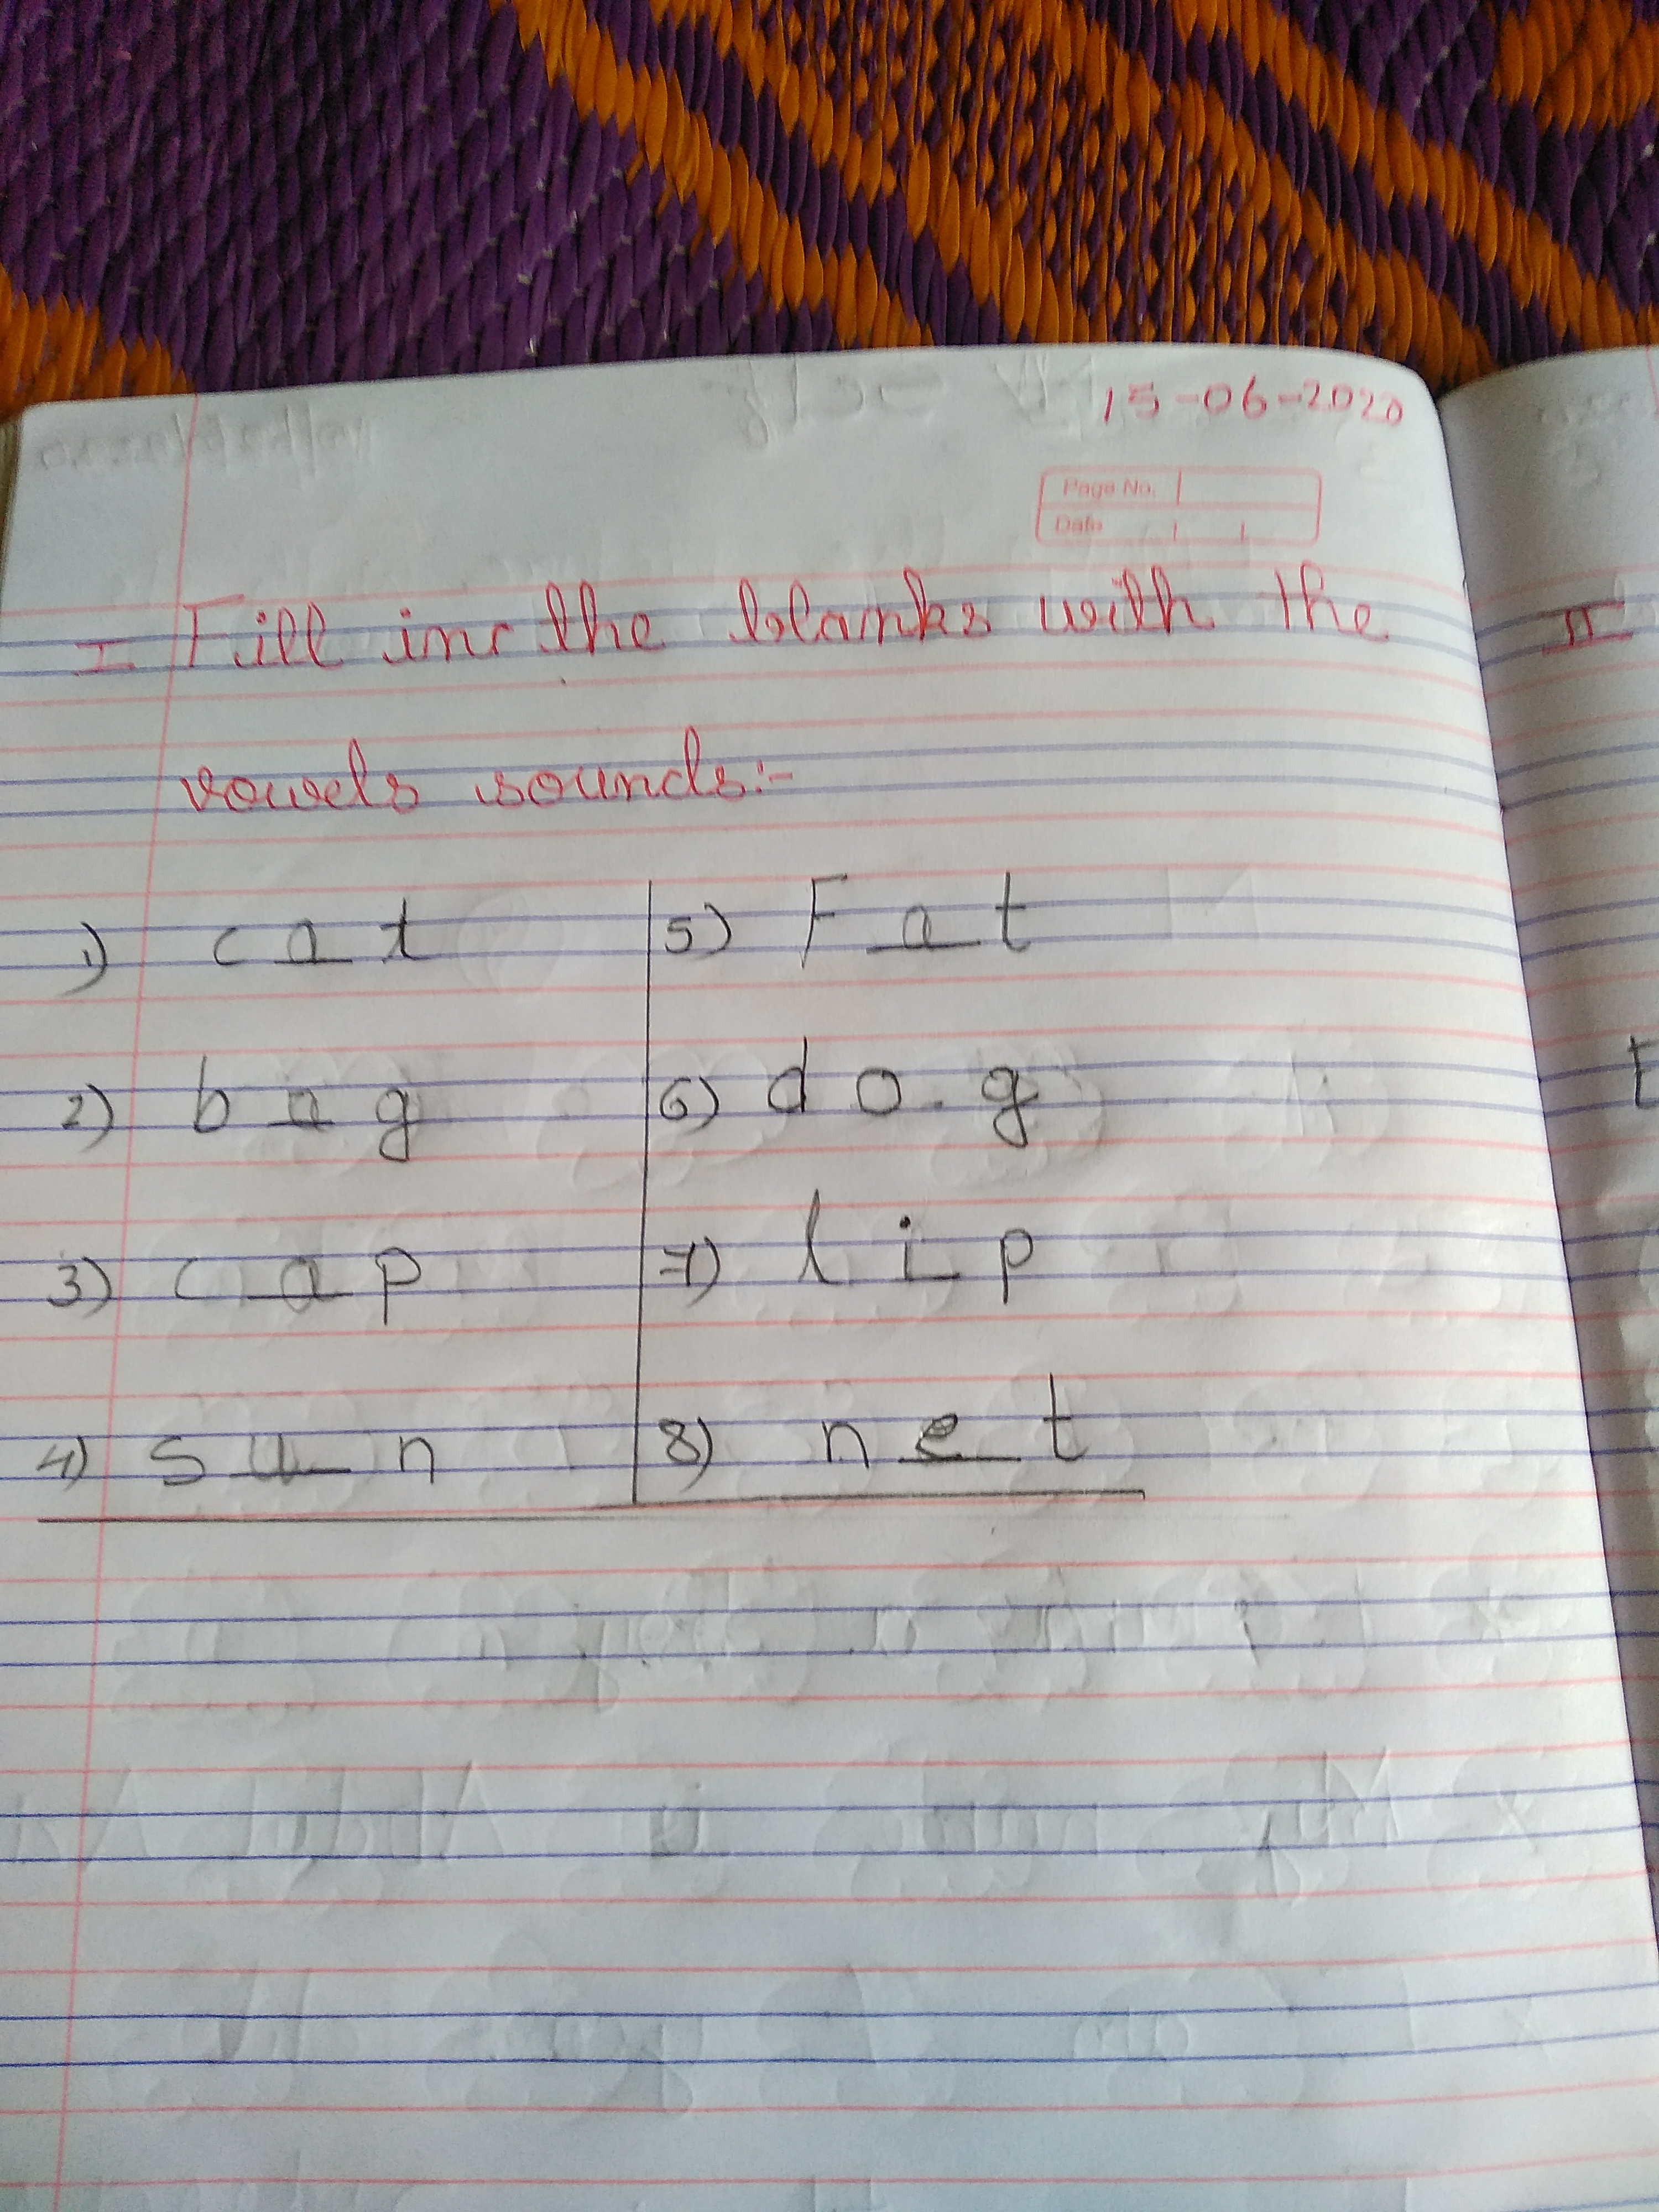 15-06-2020
Page No.
Date
I Fill in the blanks with the
vowels sounds:-
1) c a t
2) b a g
3) c a p
4) s u n
5) F a t
6) d o g
7) l i p
8) n e t
II
t